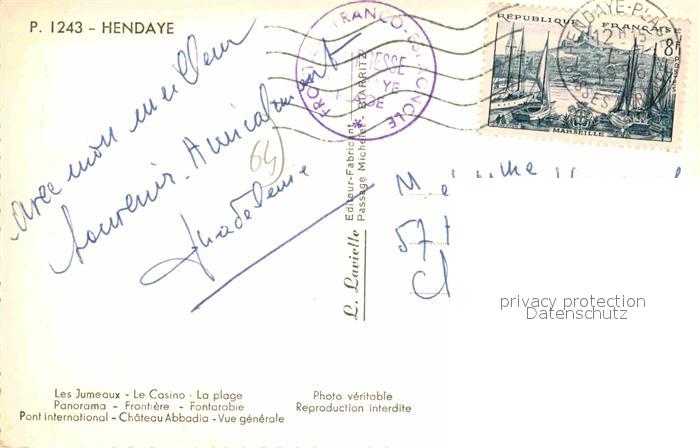 P. 1243 - HENDAYE
avec mon meilleur
souvenir. Amicalement
Madeleine
64
FRANCO-ESPAGNOLE
RÉPUBLIQUE FRANÇAISE
8F
POSTES
MARSEILLE
HENDAYE-PLAGE
12H15
L. Lavielle
Editeur-Fabricant
Passage Michelet - BIARRITZ
M
me
57
Cl
privacy protection
Datenschutz
Les Jumeaux - Le Casino - La plage
Panorama - Frontière - Fontarabie
Pont international - Château Abbadia - Vue générale
Photo véritable
Reproduction interdite